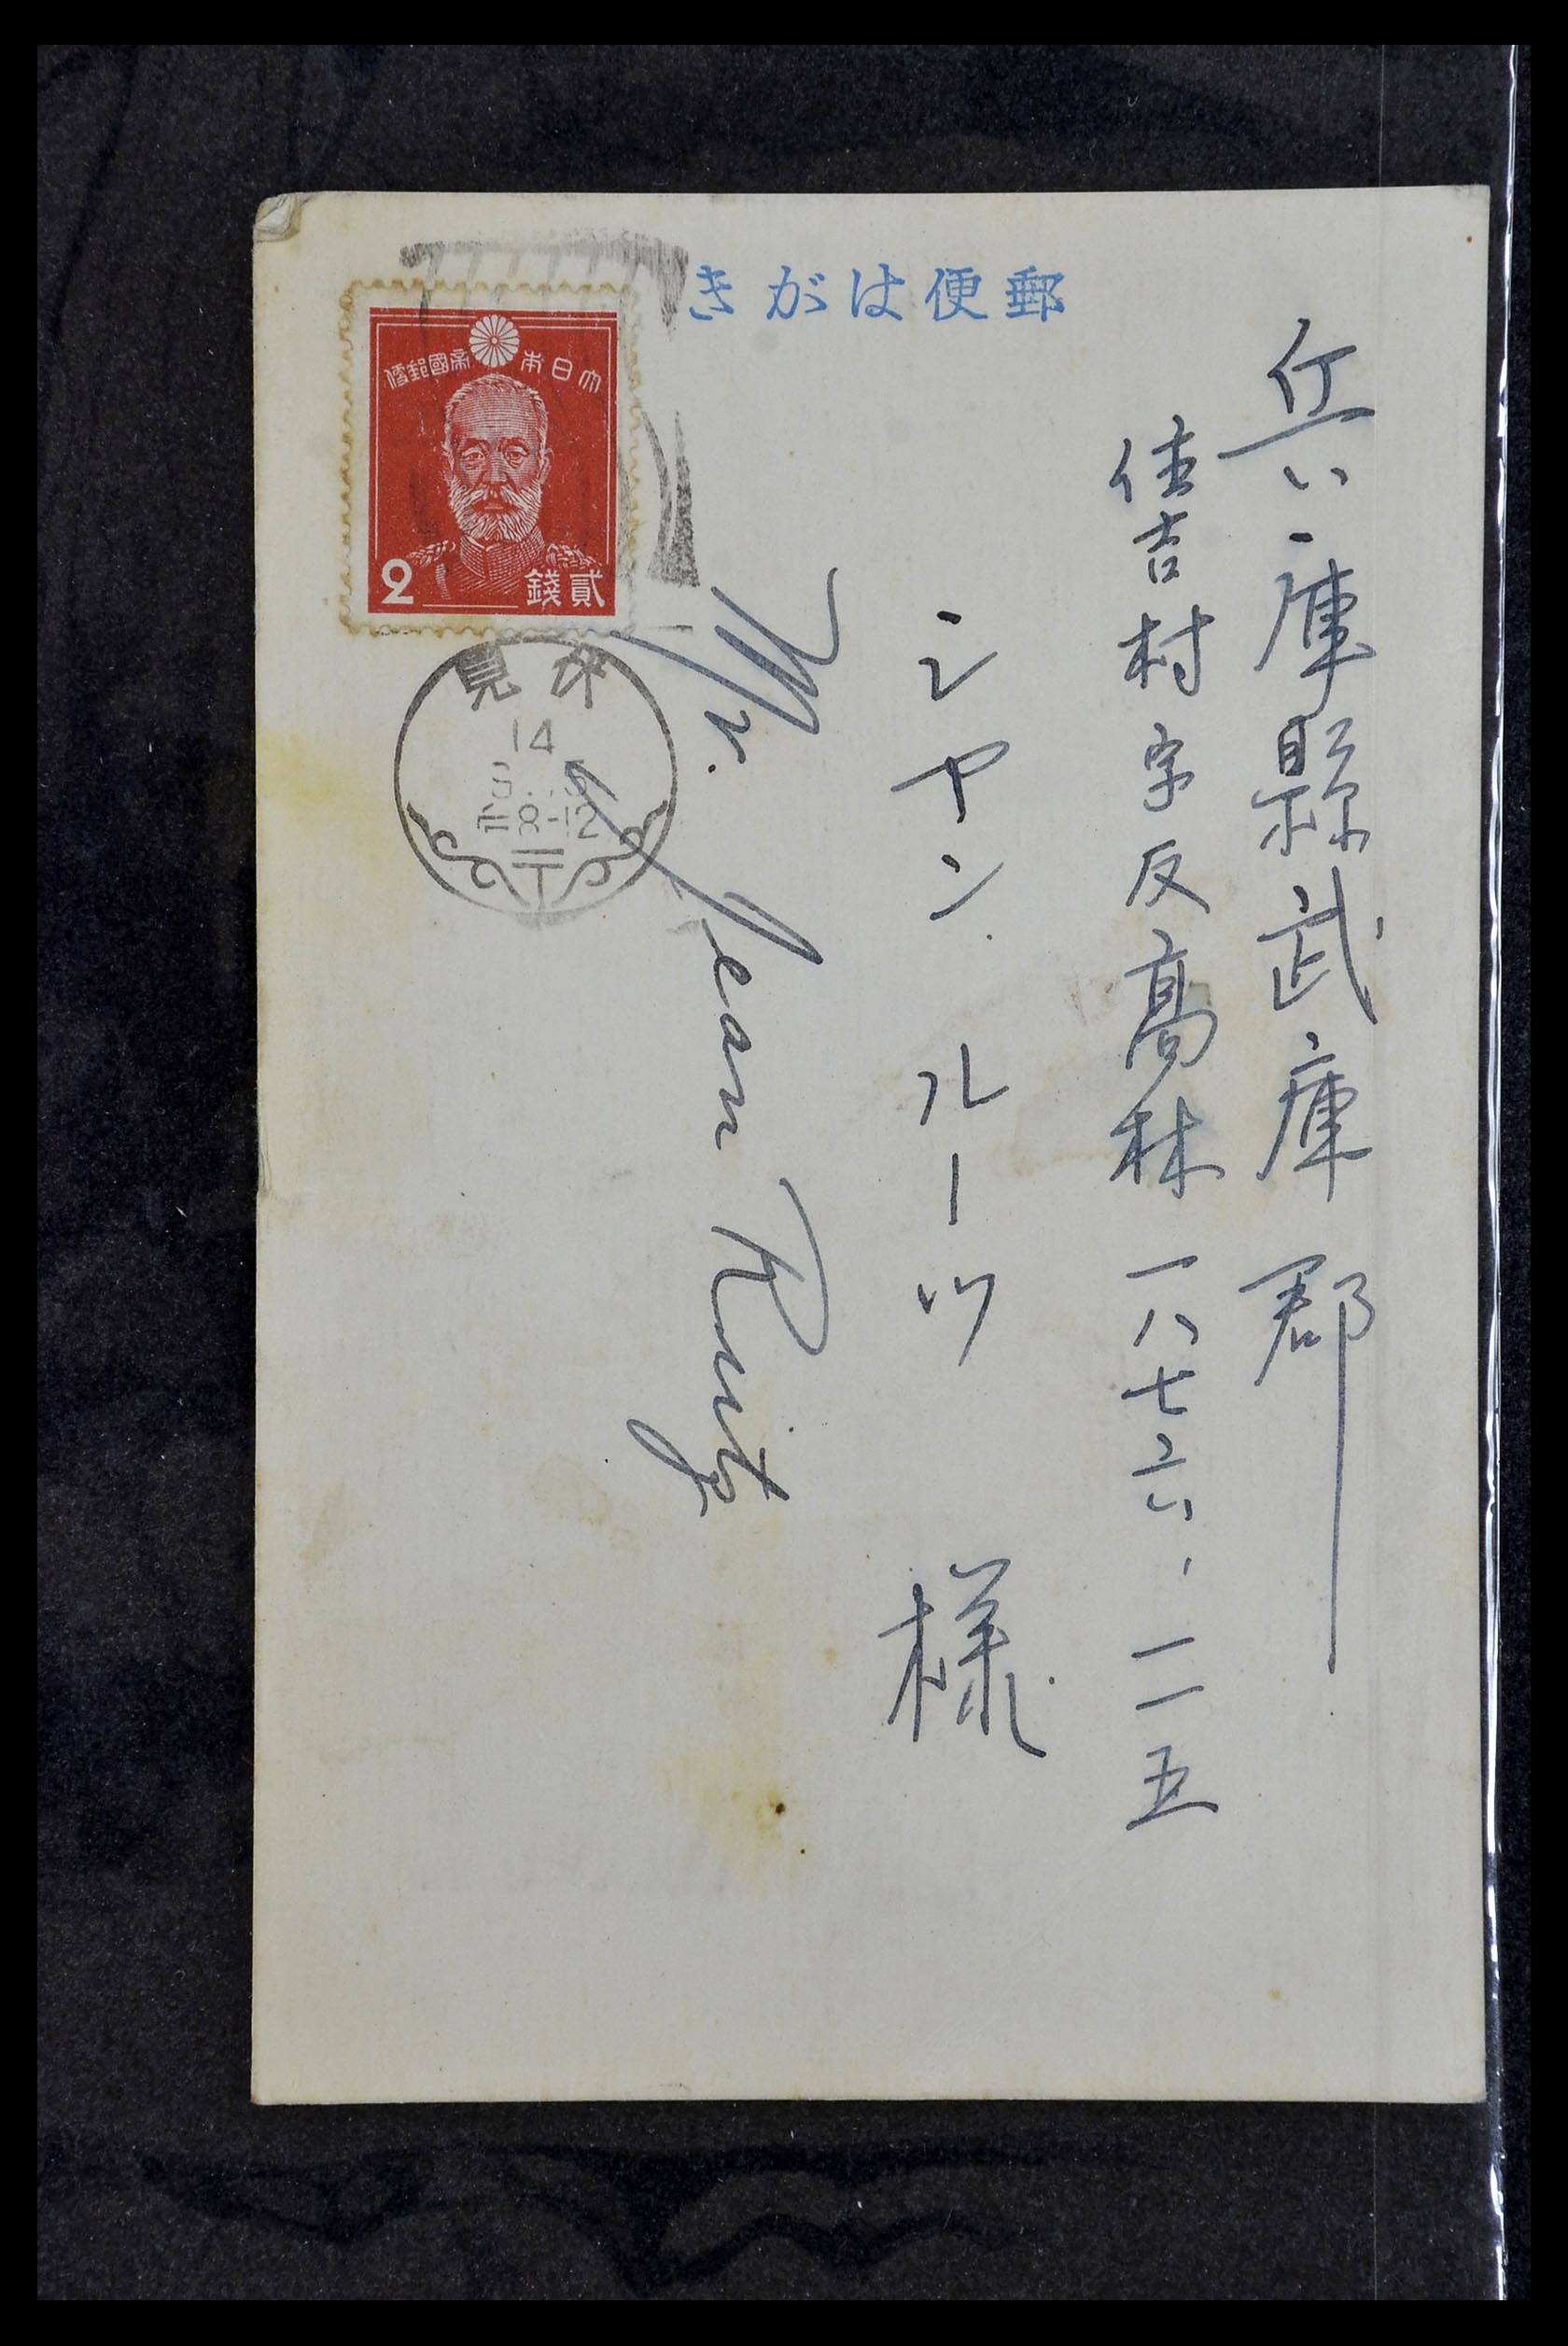 きがは便郵
大日本帝國郵便
2 貳錢
兵庫縣武庫郡
住吉村字反高林一八七六、一一五
シヤン ルーツ 様
Mr. Jean Ruitz
見伏
14
8-12